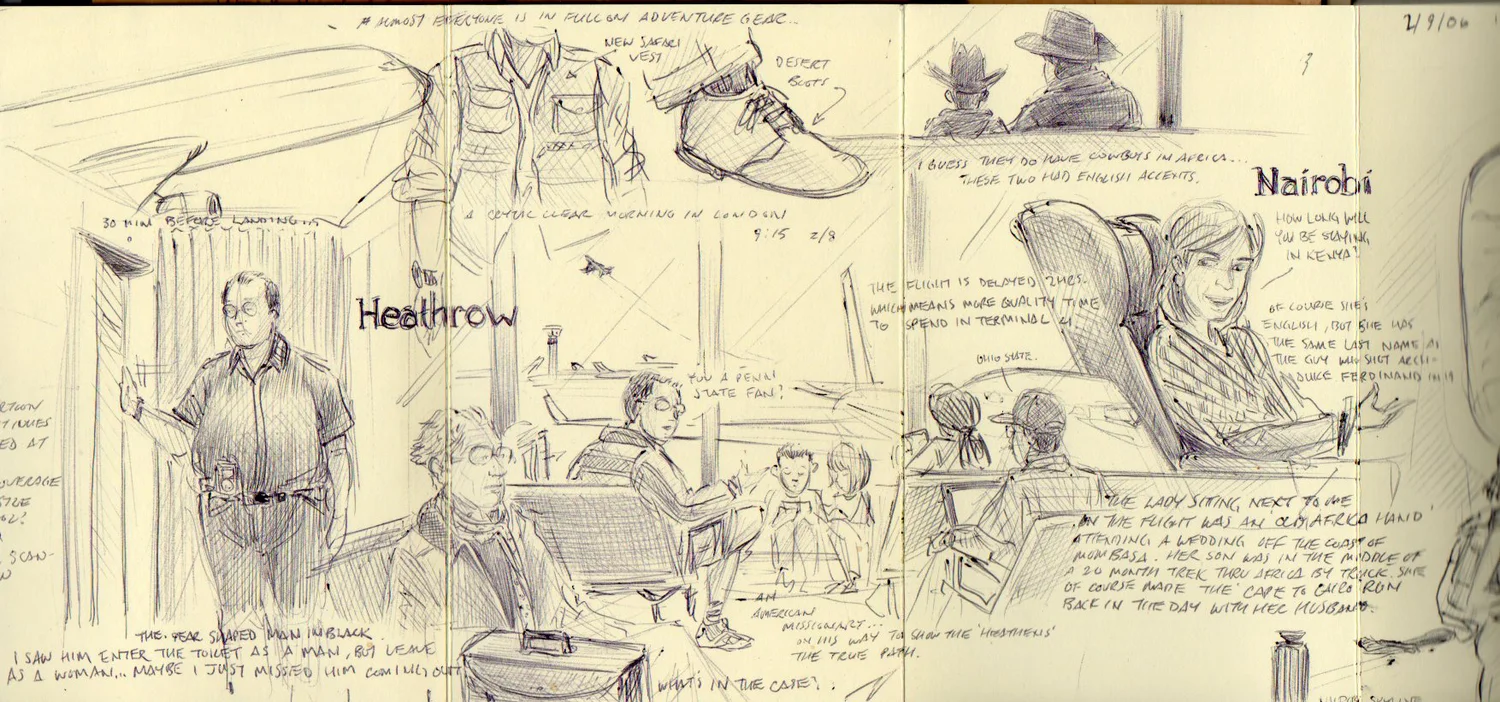 # ALMOST EVERYONE IS IN FULL ON ADVENTURE GEAR...
NEW SAFARI
VEST
DESERT
BOOTS
2/9/06
I GUESS THEY DO HAVE COWBOYS IN AFRICA...
THESE TWO HAD ENGLISH ACCENTS.
Nairobi
30 MIN BEFORE LANDING...
A CRYTAL CLEAR MORNING IN LONDON
9:15 2/8
Heathrow
HOW LONG WILL
YOU BE STAYING
IN KENYA?
THE FLIGHT IS DELAYED 2HRS.
WHICH MEANS MORE QUALITY TIME
TO SPEND IN TERMINAL 4.
OF COURSE SHE'S
ENGLISH, BUT SHE HAS
THE SAME LAST NAME AS
THE GUY WHO SHOT ARCH-
DUKE FERDINAND IN 19
OHIO STATE.
YOU A PENN
STATE FAN?
ED AT
OVERAGE
SCAN-
THE LADY SITING NEXT TO ME
ON THE FLIGHT WAS AN OLD AFRICA HAND
ATTENDING A WEDDING OFF THE COAST OF
MOMBASA. HER SON WAS IN THE MIDDLE OF
A 20 MONTH TREK THRU AFRICA BY TRUCK. SHE
OF COURSE MADE THE 'CAPE TO CAIRO' RUN
BACK IN THE DAY WITH HER HUSBAND.
AN
AMERICAN
MISSIONARY...
ON HIS WAY TO SHOW THE 'HEATHENS'
THE TRUE PATH.
THE PEAR SHAPED MAN IN BLACK.
I SAW HIM ENTER THE TOILET AS A MAN, BUT LEAVE
AS A WOMAN... MAYBE I JUST MISSED HIM COMING OUT
WHAT'S IN THE CASE?